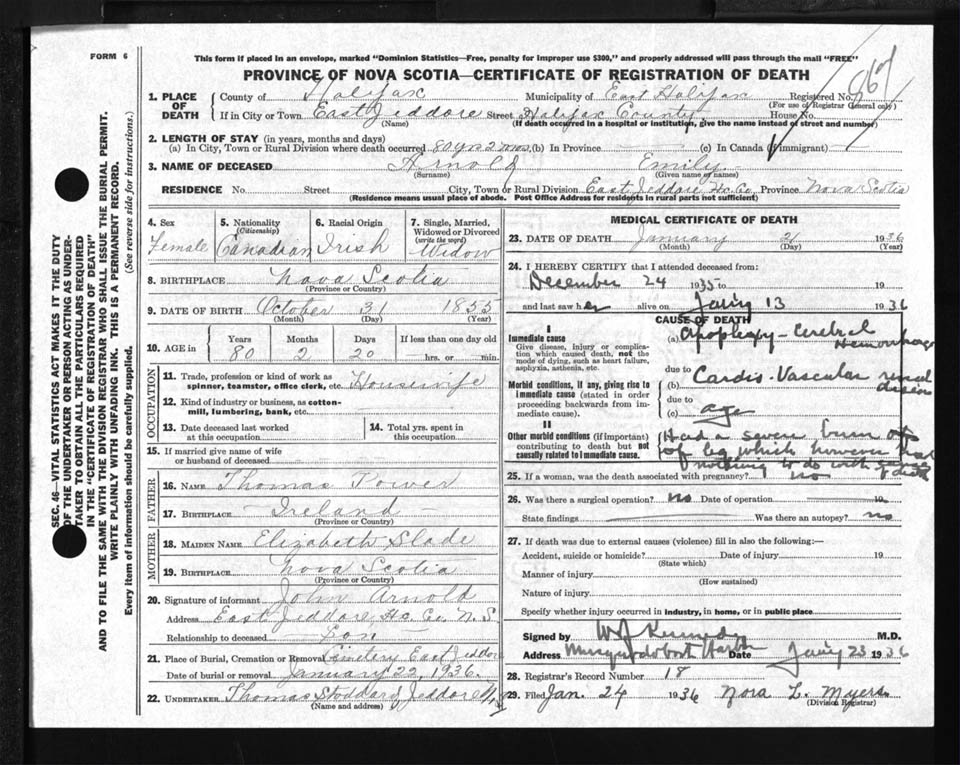 FORM 6
This form if placed in an envelope, marked "Dominion Statistics—Free, penalty for improper use $300," and properly addressed will pass through the mail "FREE"
PROVINCE OF NOVA SCOTIA—CERTIFICATE OF REGISTRATION OF DEATH
1. PLACE OF DEATH County of Halifax Municipality of East Halifax Registered No.
(For use of Registrar General only)
If in City or Town East Jeddore Street Halifax County House No.
(Name) (If death occurred in a hospital or institution, give the name instead of street and number)
2. LENGTH OF STAY (in years, months and days)
(a) In City, Town or Rural Division where death occurred 80 yrs 2 mos. (b) In Province (c) In Canada (if immigrant)
3. NAME OF DECEASED Arnold Emily
(Surname) (Given or names)
RESIDENCE No. Street City, Town or Rural Division East Jeddore Hx. Co. Province Nova Scotia
(Residence means usual place of abode. Post Office Address for residents in rural parts not sufficient)
4. Sex Female
5. Nationality (Citizenship) Canadian
6. Racial Origin Irish
7. Single, Married, Widowed or Divorced (write the word) Widow
8. BIRTHPLACE Nova Scotia
(Province or Country)
9. DATE OF BIRTH October 31 1855
(Month) (Day) (Year)
10. AGE in Years Months Days If less than one day old
80 2 20 hrs. or min.
OCCUPATION
11. Trade, profession or kind of work as spinner, teamster, office clerk, etc. Housewife
12. Kind of industry or business, as cotton-mill, lumbering, bank, etc.
13. Date deceased last worked at this occupation
14. Total yrs. spent in this occupation
15. If married give name of wife or husband of deceased
FATHER
16. NAME Thomas Power
17. BIRTHPLACE Ireland
(Province or Country)
MOTHER
18. MAIDEN NAME Elizabeth Slade
19. BIRTHPLACE Nova Scotia
(Province or Country)
20. Signature of informant John Arnold
Address East Jeddore, Hx. Co. N. S.
Relationship to deceased Son
21. Place of Burial, Cremation or Removal Cemetery East Jeddore
Date of burial or removal January 22, 1936.
22. UNDERTAKER Thomas Stoddard Jeddore
(Name and address)
MEDICAL CERTIFICATE OF DEATH
23. DATE OF DEATH January 21 1936
(Month) (Day) (Year)
24. I HEREBY CERTIFY that I attended deceased from:
December 24 1935 to 19
and last saw her alive on Jany 13 1936
CAUSE OF DEATH
I
Immediate cause
Give disease, injury or complication which caused death, not the mode of dying, such as heart failure, asphyxia, asthenia, etc.
(a) Apoplexy - Cerebral Hemorrhage
due to
Morbid conditions, if any, giving rise to immediate cause (stated in order proceeding backwards from immediate cause).
(b) Cardio-Vascular renal disease
due to
(c) age
II
Other morbid conditions (if important) contributing to death but not causally related to immediate cause.
Had a severe burn
of leg which however had
nothing to do with death
25. If a woman, was the death associated with pregnancy? no
26. Was there a surgical operation? no Date of operation 19
State findings Was there an autopsy? no
27. If death was due to external causes (violence) fill in also the following:—
Accident, suicide or homicide? Date of injury 19
(State which)
Manner of injury
(How sustained)
Nature of injury
Specify whether injury occurred in industry, in home, or in public place
Signed by W J Kennedy M.D.
Address Musquodoboit Harbor Date Jany 23 1936
28. Registrar's Record Number 18
29. Filed Jan. 24 1936 Nora L. Myers
(Division Registrar)
SEC. 46—VITAL STATISTICS ACT MAKES IT THE DUTY
OF THE UNDERTAKER OR PERSON ACTING AS UNDER-
TAKER TO OBTAIN ALL THE PARTICULARS REQUIRED
IN THE "CERTIFICATE OF REGISTRATION OF DEATH"
AND TO FILE THE SAME WITH THE DIVISION REGISTRAR WHO SHALL ISSUE THE BURIAL PERMIT.
WRITE PLAINLY WITH UNFADING INK. THIS IS A PERMANENT RECORD.
Every item of information should be carefully supplied. (See reverse side for instructions.)